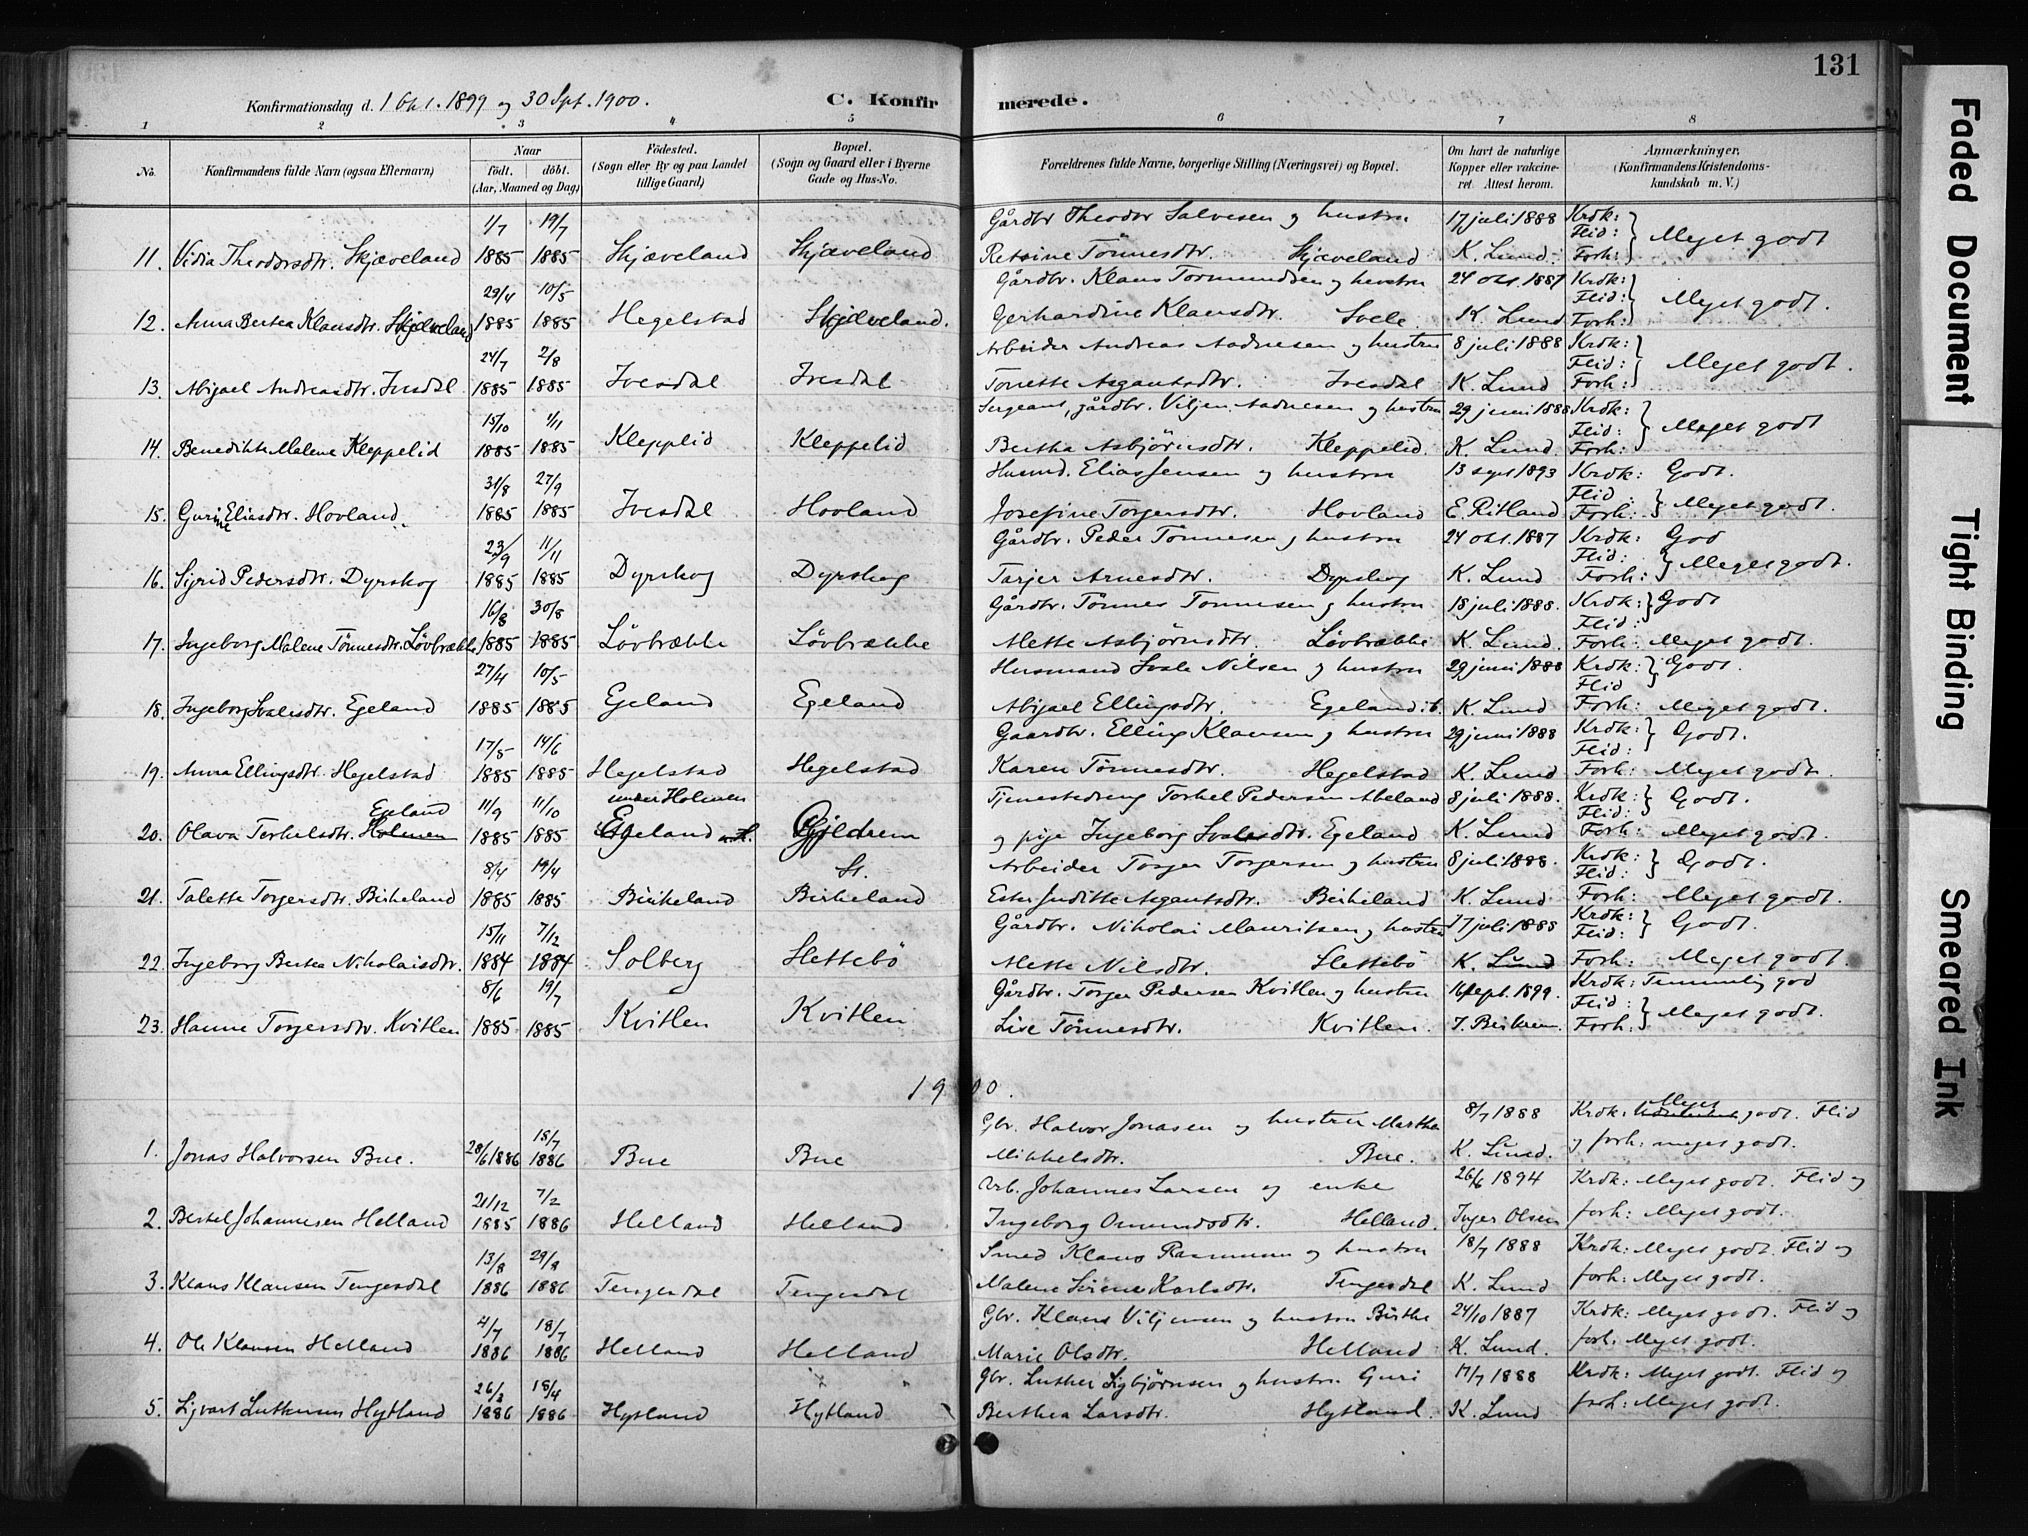 131
Konfirmationsdag d. 1 Okt. 1899 og 30 Spt. 1900.
C. Konfirmerede.
1 2 3 4 5 6 7 8
No. Konfirmandens fulde Navn (ogsaa Efternavn) Naar födt. döbt. (Aar, Maaned og Dag) Födested. (Sogn eller By og paa Landet tillige Gaard) Bopæl. (Sogn og Gaard eller i Byerne Gade og Hus-No. Forældrenes fulde Navne, borgerlige Stilling (Næringsvei) og Bopæl. Om havt de naturlige Kopper eller vakcineret Attest herom. Anmærkninger, (Konfirmandens Kristendomskundskab m. V.)
1/7 19/7 Gårdbr Theodor Salvesen og hustru 17 juli 1888 Krdk: Flid: Meget godt
11. Vidia Theodorsdtr. Skjæveland 1885 1885 Skjæveland Skjæveland Tönnesdtr. Skjæveland K. Lund. Forh:
29/4 10/5 Gårdbr. Klaus Tormundsen og hustru 24 okt. 1887 Krdk: Flid: Meget godt.
12. Anna Bertea Klausdtr. Skjæveland 1885 1885 Hegelstad Skjæveland. Gerhardine Klausdtr. Svele K. Lund Forh:
24/7 2/8 Arbeider Andreas Aadnesen og hustru 8 juli 1888 Krdk: Flid: Meget godt.
13. Abigael Andreasdtr. Ivesdal 1885 1885 Ivesdal Ivesdal Tonette Asgautsdtr. Ivesdal K. Lund Forh:
15/10 1/11 Sergeant, gårdbr. Viljen Aadnesen og hustru 29 juni 1888 Krdk: Flid: Meget godt
14. Benedikte Malene Kleppelid 1885 1885 Klepplid Kleppelid Bertha Asbjörnsdtr. Kleppelid. K. Lund. Forh:
31/8 27/9 Husmd. Elias Jensen og hustru 13 sept 1893 Krdk: Godt.
15. Gurine Eliasdtr. Hovland. 1885 1885 Ivesdal Hovland Josefine Torgersdtr. Hovland E. Ritland Flid: Forh: Meget godt.
23/9 11/11 Gårdbr. Peder Tönnesen og hustru 24 okt. 1887 Krdk: God
16. Sigrid Pedersdtr. Dyrskog 1885 1885 Dyrskog Dyrskog Tarjer Arnesdtr. Dyrskog K. Lund Flid: Forh: Meget godt.
16/8 30/8 Gårdbr. Tönnes Tönnesen og hustru 18 juli 1888. Krdk: Flid: Godt
17. Ingeborg Malene Tönnesdtr. Lövbrække 1885 1885 Lövbrække Lövbrække Mette Asbjörnsdtr. Lövbrække K. Lund. Forh: Meget godt.
27/4 10/5 Husmand Svale Nilsen og hustru 29 juni 1888 Krdk: Flid Godt.
18. Ingeborg Svalesdtr. Egeland 1885 1885 Egeland Egeland Abigael Ellingsdtr. Egeland i b. K. Lund Forh: Meget godt.
17/5 14/6 Gaardbr. Elling Klausen og hustru 29 juni 1888 Krdk: Flid: Godt.
19. Anna Ellingsdtr. Hegelstad 1885 1885 Hegelstad Hegelstad Karen Tönnesdtr. Hegelstad K. Lund Forh: Meget godt.
Egeland 11/9 11/10 under Holmen Tjenestedreng Torkel Pedersen Abeland 8 juli 1888. Krdk: Flid: Godt.
20. Olava Torkelsdtr. Holmen 1885 1885 Egeland Gjildrem og pige Ingeborg Svalesdtr. Egeland K. Lund Forh: Meget godt.
8/4 19/4 St. Arbeider Torger Torgersen og hustru 8 juli 1888. Krdk: Flid: Godt.
21. Talette Torgersdtr. Birkeland 1885 1885 Birkeland Birkeland Ester Juditte Asgautsdtr. Birkeland K. Lund Forh: Meget godt.
15/11 7/12 Gårdbr. Nikolai Mauritsen og hustru 17 juli 1885 Krdk: Flid: Godt.
22. Ingeborg Bertea Nikolaisdtr. 1884 1884 Solberg Slettebö Mette Nilsdtr. Slettebö K. Lund Forh: Meget godt.
8/6 19/7 Gårdbr. Torger Pedersen Kvitlen og hustru 16 sept. 1899. Krdk: Temmelig god
23. Hanne Torgersdtr. Kvitlen 1885 1885 Kvitlen Kvitlen Live Tönnesdtr. Kvitlen. Flid: Forh: Meget godt.
1900.
Gbr. Halvor Jonasen og hustru Martha 8/7 1888 Krdk: Meget godt. Flid
1. Jonas Halvorsen Bue. 28/6 1886 18/7 1886 Bue Bue Mikkelsdtr. Bue. K. Lund. og forh: meget godt.
21/12 7/2 Arb. Johannes Larsen og enke 26/6 1894 Krdk: Meget godt. Flid og
2. Bertel Johannesen Helland 1885 1886 Helland Helland Ingeborg Omundsdtr. Helland. Inger Olsen forh: Meget godt.
13/8 29/8 Smed Klaus Rasmussen og hustru 18/7 1888 Krdk: Meget godt. Flid og
3. Klaus Klausen Tengesdal 1886 1886 Tengesdal Tengesdal Malene Serine Karlsdtr. Tengesdal K. Lund forh: Meget godt.
4/7 18/7 Gbr. Klaus Viljensen og hustru Birthe 24/10 1887 Krdk: Meget godt. Flid og
4. Ole Klausen Helland 1886 1886 Helland Helland Marie Olsdtr. Helland K. Lund. forh. Meget godt.
26/3 18/4 Gbr. Luther Sigbjörnsen og hustru Guri 17/7 1888 Krdk: Meget godt. Flid og
5. Sigvart Luthersen Hytland 1886 1886 Hytland Hytland Berthea Larsdtr. Hytland. K. Lund forh: Meget godt.
Faded Document
Tight Binding
Smeared Ink